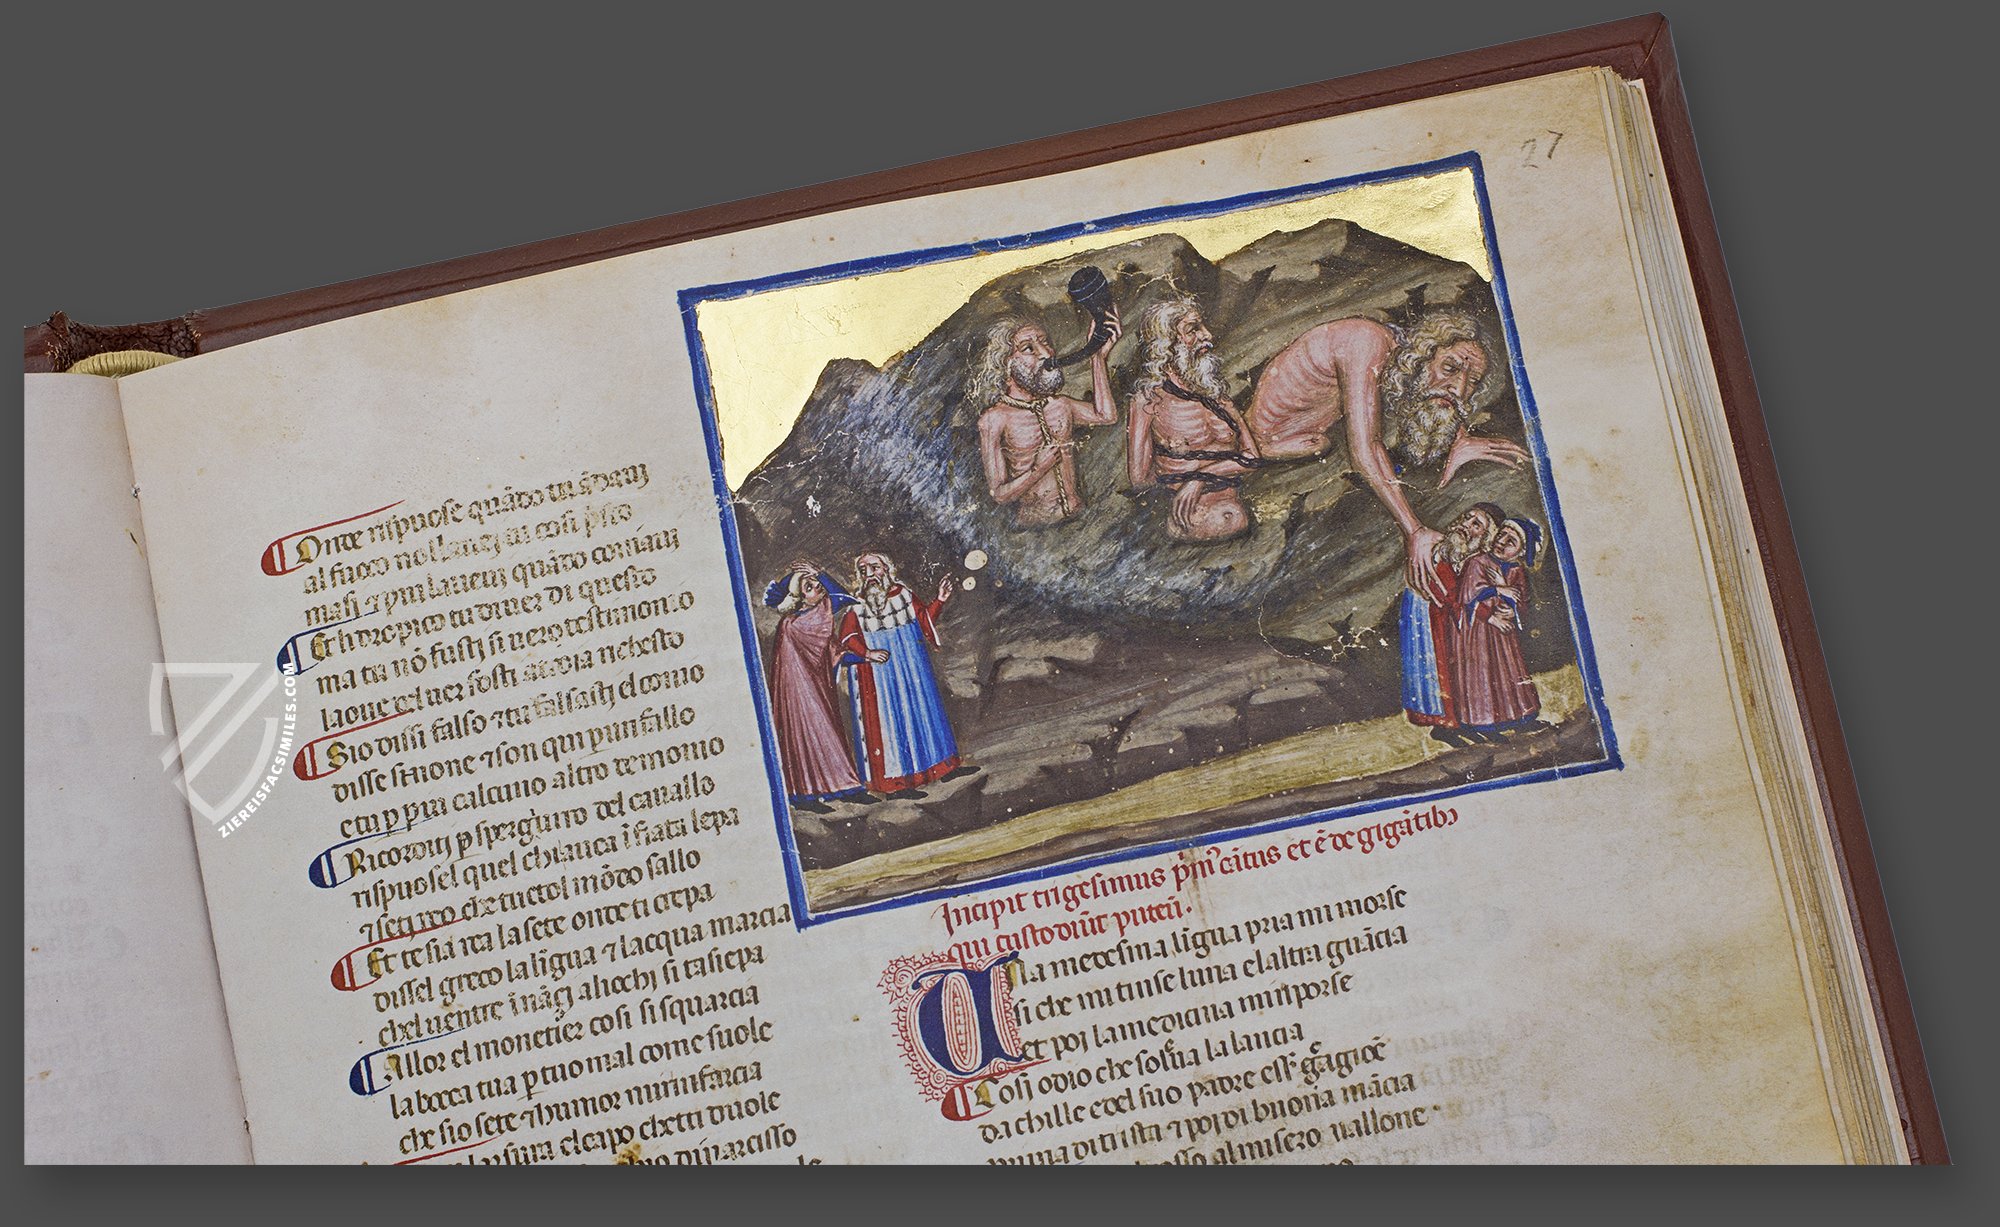 27
Onde rispuose quãdo tu ãdaui
al fuoco nollauei tu cosi p̃sto
ma si ⁊ piu lauein quãdo coniaui
Et lidropico tu diuer di questo
ma tu nõ fusti si uero testimonio
laoue del uer fosti a troia richesto
Sio dissi falso ⁊ tu falsasti el conio
disse sinone ⁊ son qui p un fallo
e tu p piu calcuno altro demonio
Ricorditi p sperg'uro del cauallo
rispuosel quel chauca ĩfiata lepa
⁊ seti reo che tuctol mõdo sallo
Et te sia rea la sete onde ti crepa
dissel greco la lĩgua ⁊ lacqua marcia
chel uentre ĩnãçi aliochi si tasiepa
Allor el monetier cosi si squarcia
la bocca tua p tuo mal come suole
che sio sete ⁊ humor mi rinfarcia
larsura el capo chetti duole
di narcisso
Incipit trigesimus p̃m' cãtus et ẽ de gigãtib'
qui custodiũt puteũ.
Una medesima lĩgua pria mi morse
si che mi tinse luna e laltra guãcia
et poi la medicina mi riporse
Cosi odio che soleua la lancia
dachille e del suo padre esser cagiõe
prima di trista ⁊ poi di buona mãcia
dosso al misero uallone
ZIEREISFACSIMILES.COM